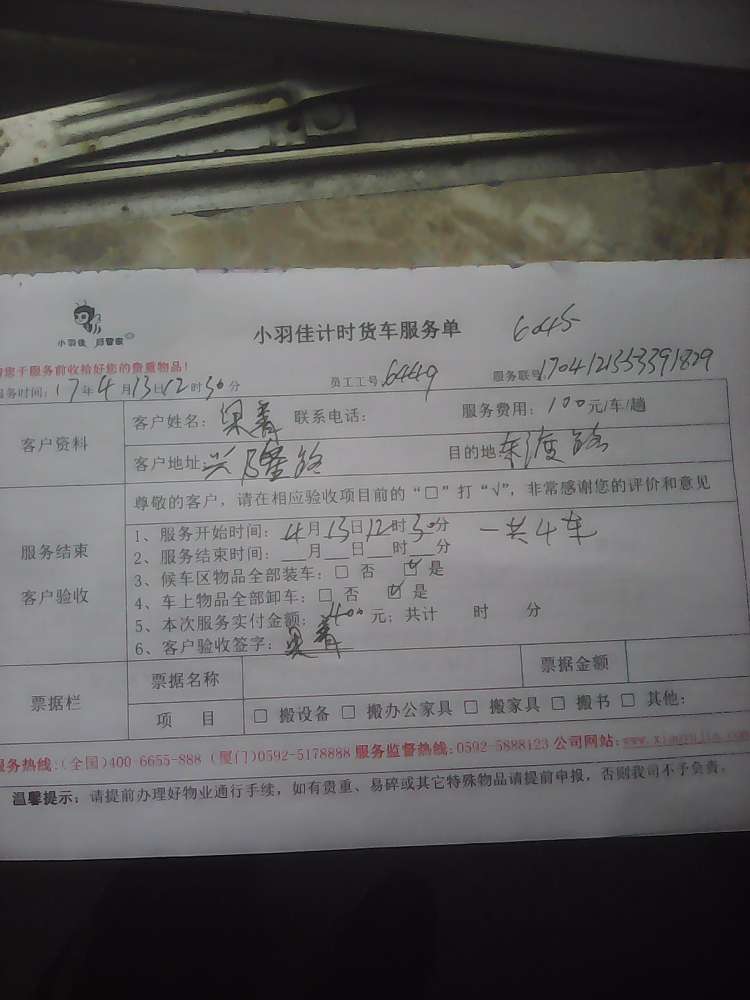 小羽佳 好管家
小羽佳计时货车服务单
6045
您于服务前收给好您的贵重物品!
服务时间: 17年4月13日12时30分 员工工号 6449 服务联号
客户资料
客户姓名: 联系电话: 服务费用: 100元/车/趟
客户地址 兴隆路 目的地 东渡路
尊敬的客户, 请在相应验收项目前的“□”打“√”, 非常感谢您的评价和意见
服务结束
客户验收
1、服务开始时间: 4月13日12时30分 一共4车
2、服务结束时间: ___月___日___时___分
3、候车区物品全部装车: □ 否 ☑ 是
4、车上物品全部卸车: □ 否 ☑ 是
5、本次服务实付金额: 400元; 共计 时 分
6、客户验收签字:
票据栏
票据名称 票据金额
项 目 □ 搬设备 □ 搬办公家具 □ 搬家具 □ 搬书 □ 其他:
服务热线:(全国)400-6655-888 (厦门)0592-5178888 服务监督热线:0592-5888123 公司网站:
温馨提示: 请提前办理好物业通行手续, 如有贵重、易碎或其它特殊物品请提前申报, 否则我司不予负责。